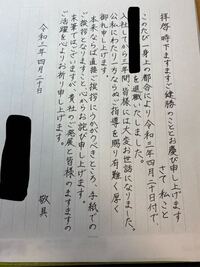 拝啓 時下ますますご健勝のこととお慶び申し上げます
さて 私こと
このたび 一身上の都合により 令和三年四月二十日付で、
を退職いたしました。
入社から三年間 皆様には大変お世話になりました。
公私にわたり一方ならぬご指導を賜り 有難く厚く
御礼申し上げます。
本来ならば直接ご挨拶にうかがうべきところ、手紙での
ご挨拶となりますこと、心からお詫び申し上げます。
末筆ではございますが 貴社のご発展と皆様のますますの
ご活躍を心よりお祈り申し上げます。
敬具
令和三年四月二十日